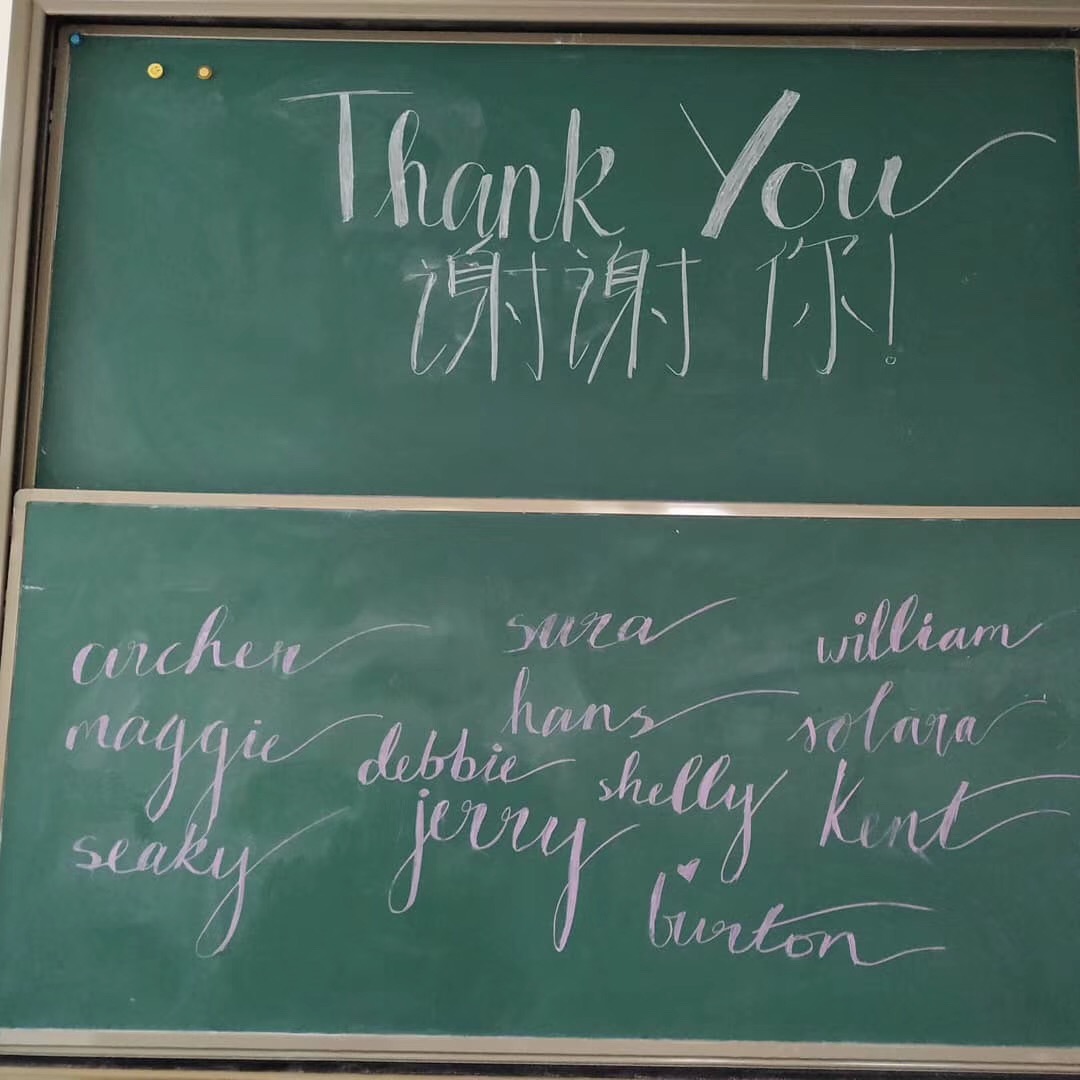 Thank You
谢谢你!
archer sara william
maggie hans solara
debbie shelly Kent
seaky jerry
burton